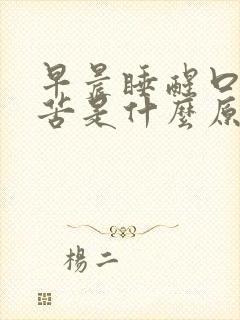 早晨睡醒口
苦是什麼原
楊二